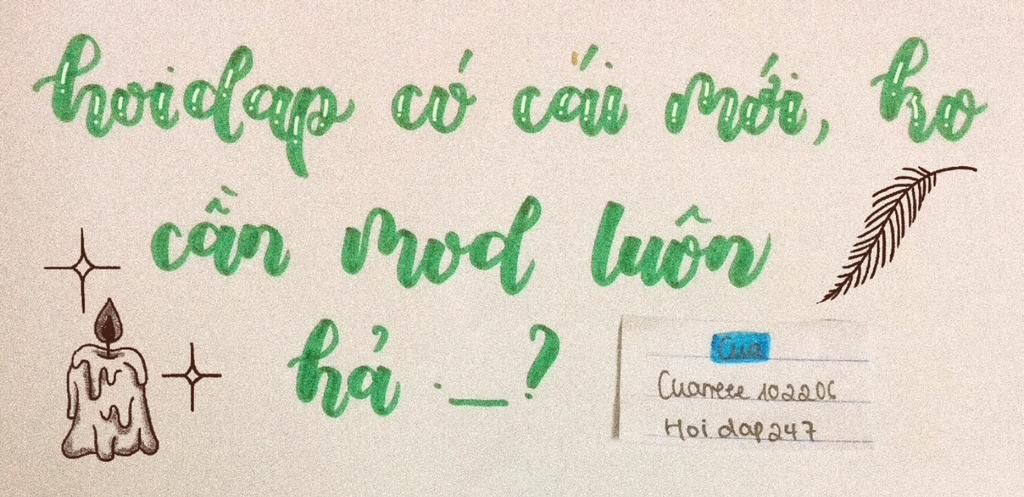 hoidap có cái mới, ko
cần mod luôn
hả ._?
Cua
Cuarreee 102206
Hoidap247